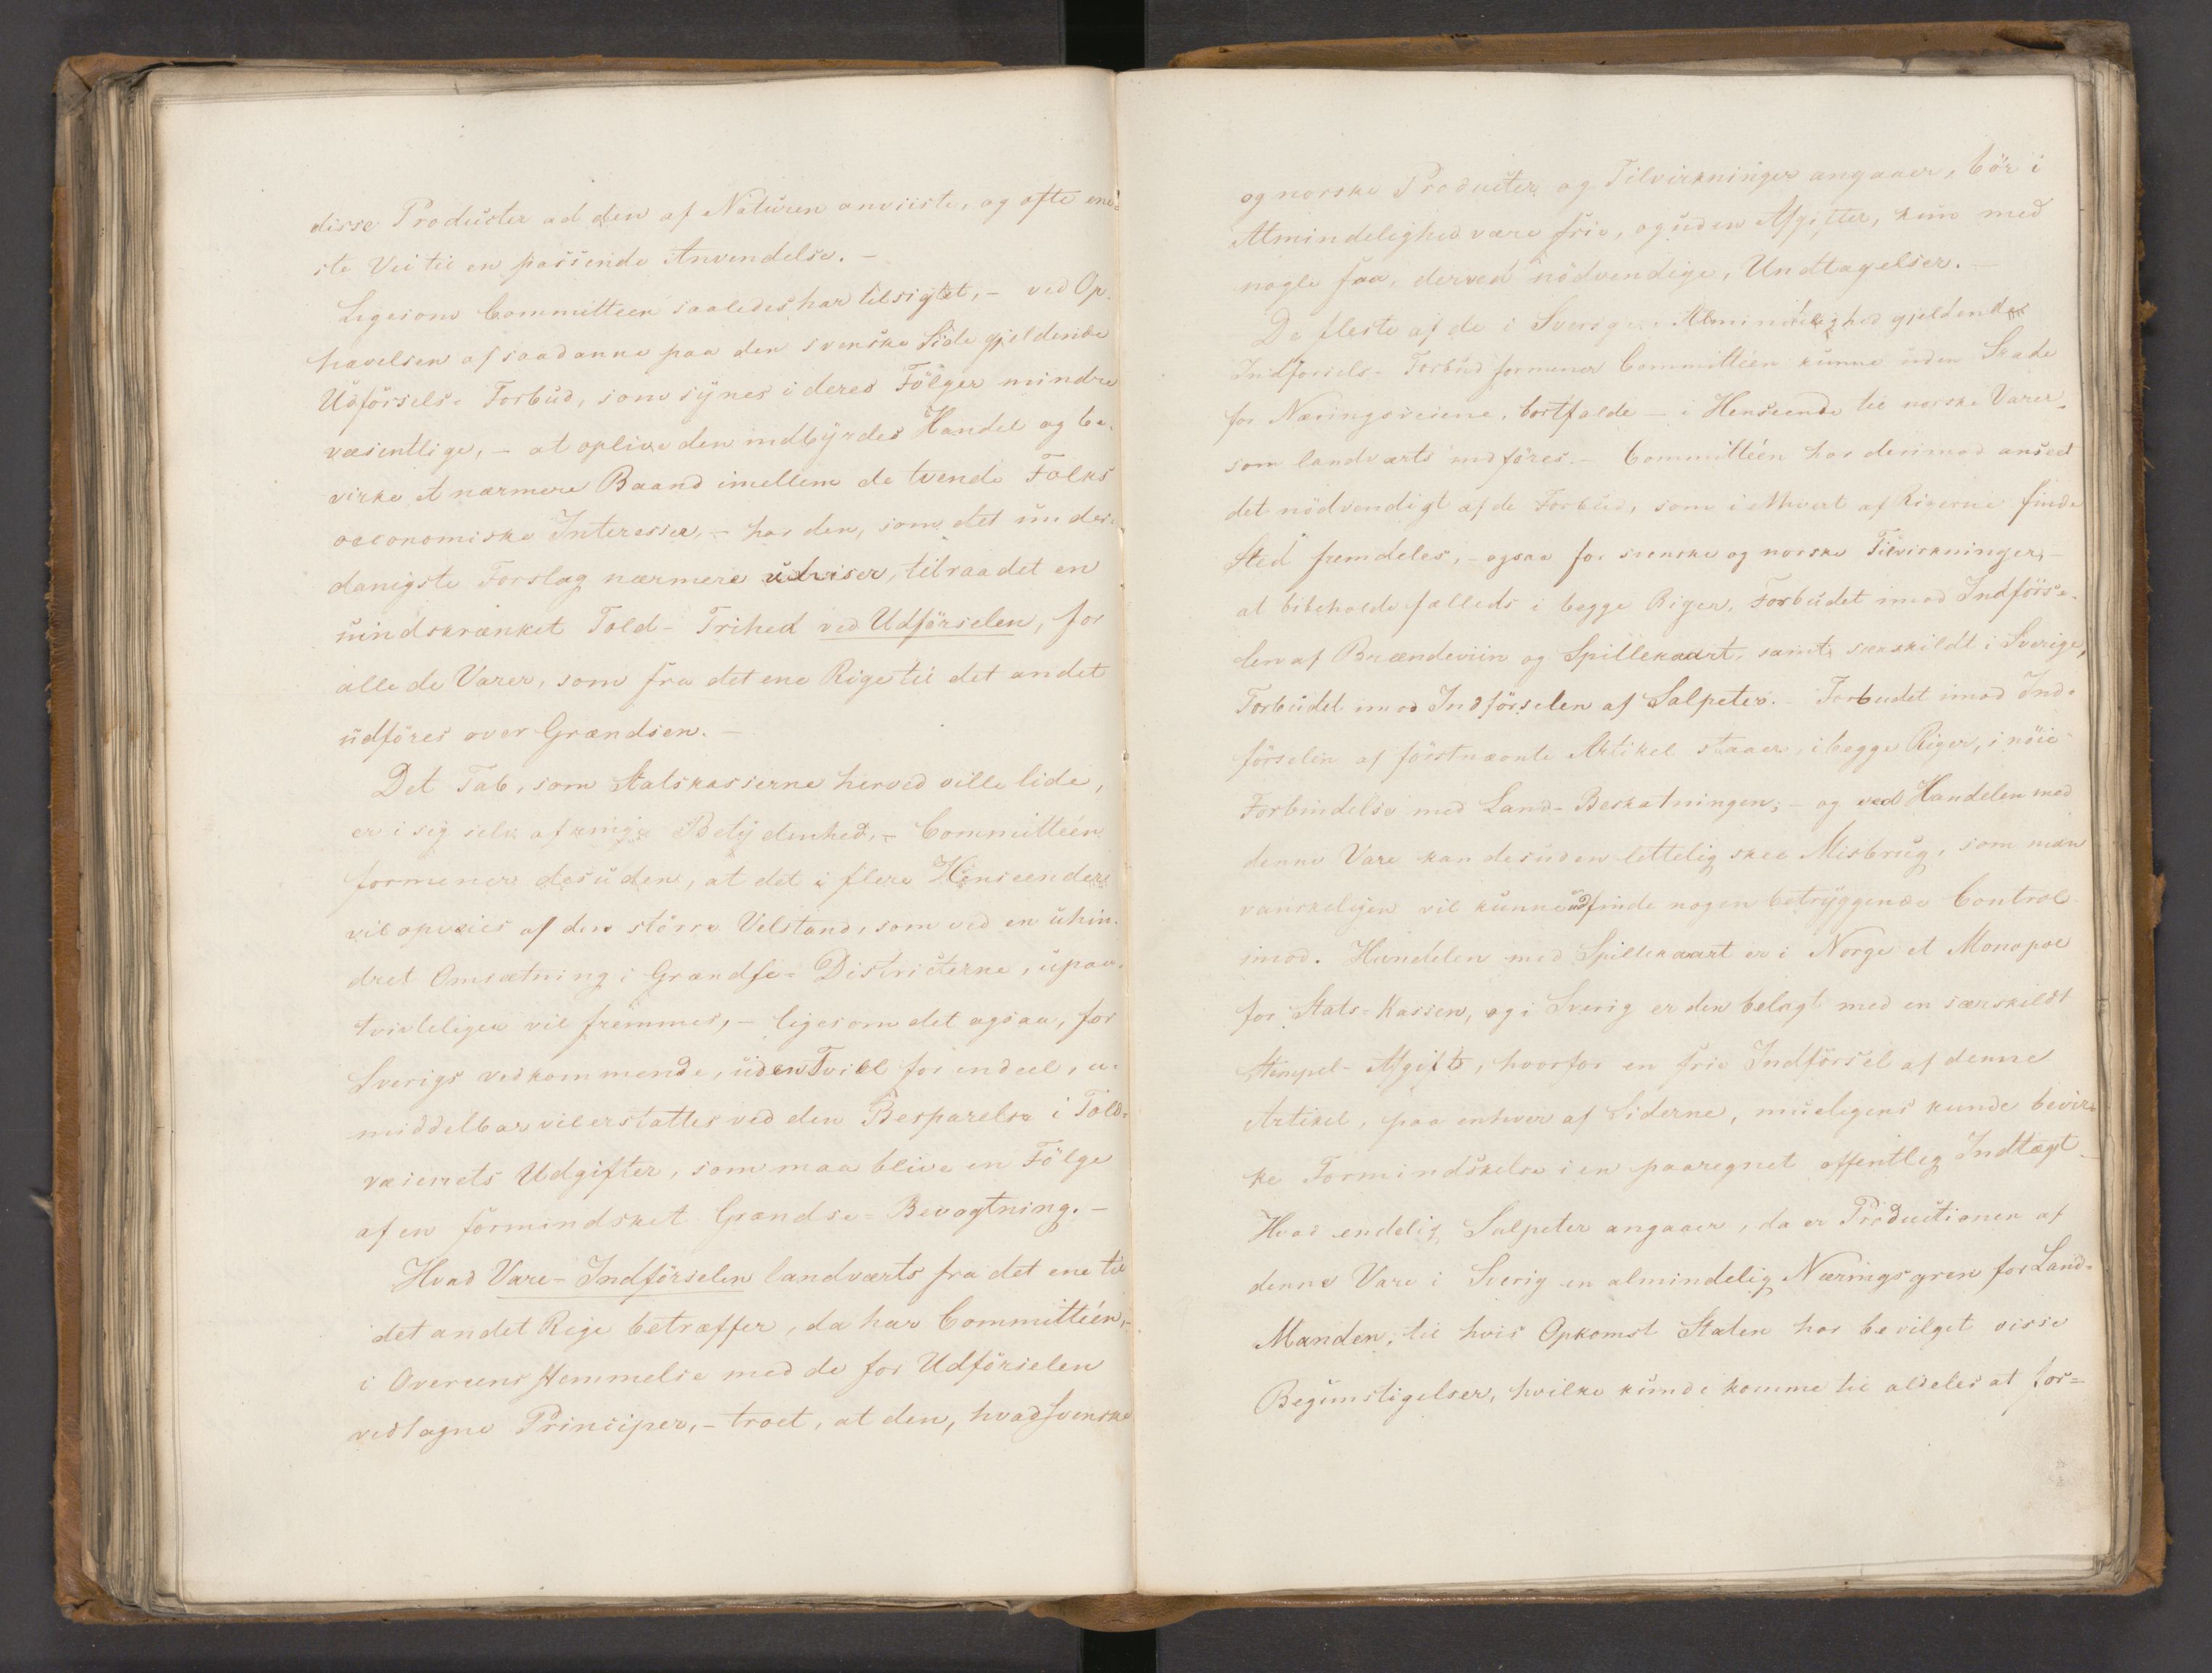 disse Producter ad den af Naturen anviiste, og ofte ene-
ste Vei til en passende Anvendelse. -
Ligesom Committeen saaledes har tilsigtet, - ved Op-
hævelsen af saadanne paa den svenske Side gjeldende
Udförsels- Forbud, som synes i deres Fölger mindre
væsentlige, - at oplive den indbyrdes Handel og be-
virke et nærmere Baand imellem de tvende Folks
oeconomiske Interesser, - har den, som det under-
danigste Forslag nærmere udviser, tilraadet en
uindskrænket Told- Frihed ved Udförselen, for
alle de Varer, som fra det ene Rige til det andet
udföres over Grændsen. -
Det Tab, som Statskasserne herved ville lide,
er i sig selv af ringe Betydenhed, - Committeén
formener desuden, at det i flere Henseender
vil opveies af den större Velstand, som ved en uhin-
dret Omsætning i Grændse- Districterne, upaa-
tvivleligen vil fremmes, - ligesom det ogsaa, for
Sverigs vedkommende, uden Tvivl for endeel, u-
middelbar vil erstattes ved den Besparelse i Told-
væsenets Udgifter, som maa blive en Fölge
af en formindsket Grændse- Bevogtning. -
Hvad Vare- Indförselen landværts fra det ene til
det andet Rige betræffer, da har Committeén,
i Overeensstemmelse med de for Udförselen
vedtagne Principer, - troet, at den, hvad svenske
og norske Producter og Tilvirkninger angaaer, bör i
Almindelighed være frie, og uden Afgifter, kun med
nogle faa, derved nödvendige, Undtagelser. -
De fleste af de i Sverige i Almindelighed gjeldende
Indförsels- Forbud formener Committeén kunne uden Skade
for Næringsveiene, bortfalde - i Henseende til norske Varer,
som landværts indföres. - Committeén har derimod anseet
det nödvendigt af de Forbud, som i ethvert af Rigerne finde
Sted fremdeles, - ogsaa for svenske og norske Tilvirkninger, -
at bibeholde fælleds i begge Riger, Forbudet imod Indförse-
len af Brændeviin og Spillekaart, samt særskildt i Sverige,
Forbudet imod Indförselen af Salpeter. - Forbudet imod Ind-
förselen af förstnævnte Artikel staaer, i begge Riger, i nöie
Forbindelse med Land- Beskatningen; - og ved Handelen med
denne Vare kan desuden lettelig skee Misbrug, som man
vanskeligen vil kunne udfinde nogen betryggende Control
imod. Handelen med Spillekaart er i Norge et Monopol
for Stats- Kassen, og i Sverig er den belagt med en særskildt
Stempel- Afgift, hvorfor en frie Indförsel af denne
Artikel, paa enhver af Siderne, mueligens kunde bevir-
ke Formindskelse i en paaregnet offentlig Indtægt. -
Hvad endelig Salpeter angaaer, da er Productionen af
denne Vare i Sverig en almindelig Næringsgren for Land-
Manden, til hvis Opkomst Staten har bevilget visse
Begunstigelser, hvilke kunde komme til aldeles at for=